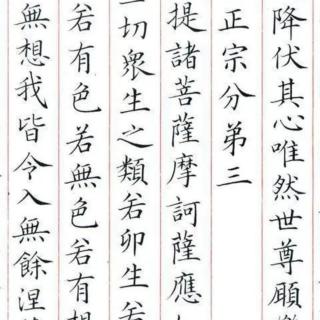 降伏其心唯然世尊願
正宗分第三
提諸菩薩摩訶薩應
一切衆生之類若卵生若
若有色若無色若有想
無想我皆令入無餘涅